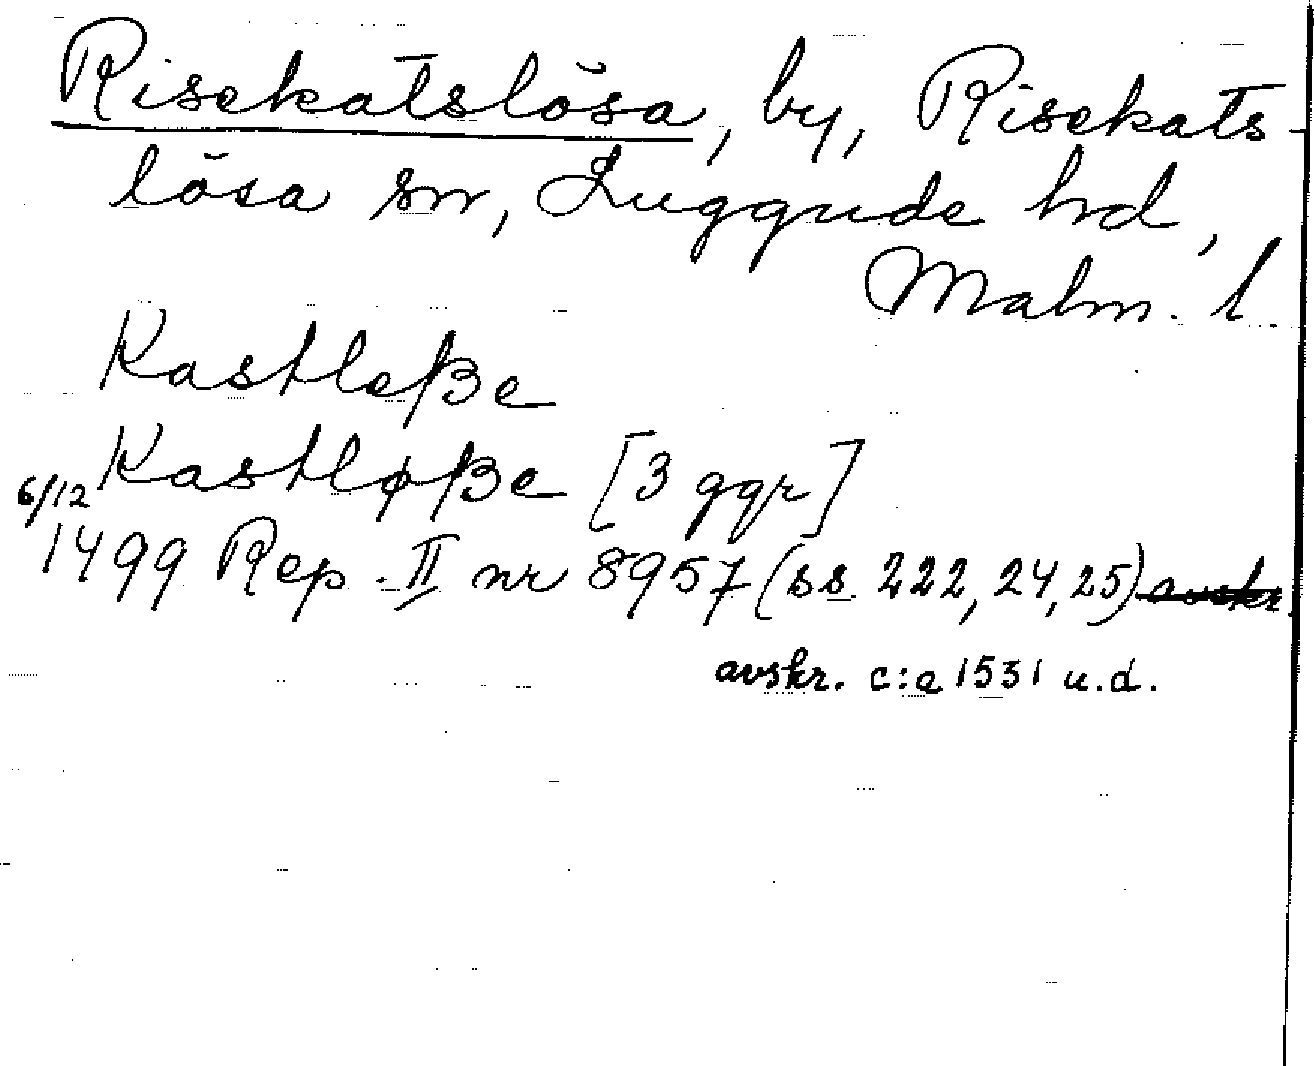 Risekatslösa, by, Risekats-
lösa sn, Luggude hd,
Malm. l
Kastloße
Kastløße [3 ggr]
6/12
1499 Rep. II nr 8957 (ss. 222, 24, 25) avskr.
avskr. c:a 1531 u.d.